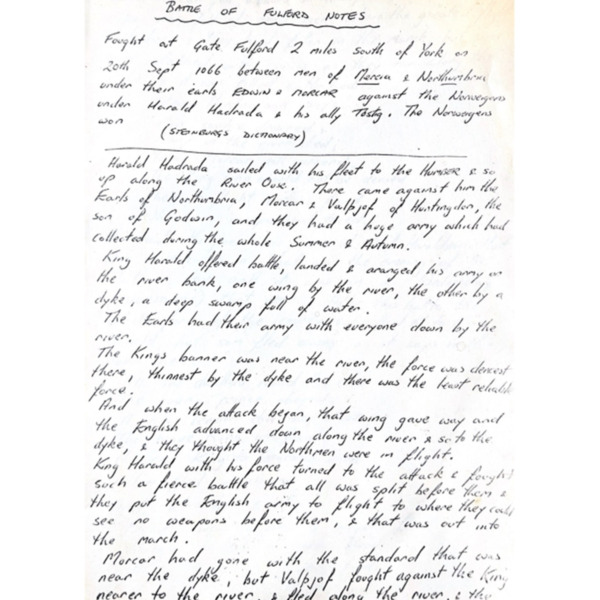 BATTLE OF FULFERD NOTES
Fought at Gate Fulford 2 miles south of York on
20th Sept 1066 between men of Mercia & Northumbria
under their earls EDWIN & MORCAR against the Norwegens
under Harald Hadrada & his ally Tostg. The Norwegens
won (STEINBURGS DICTIONARY)
Harald Hadrada sailed with his fleet to the HUMBER & so
up along the River Ouse. There came against him the
Earls of Northumbria, Morcar & Valpjof of Huntingdon, the
son of Godwin, and they had a huge army which had
collected during the whole Summer & Autumn.
King Harald offered battle, landed & aranged his army on
the river bank, one wing by the river, the other by a
dyke, a deep swamp full of water.
The Earls had their army with everyone down by the
river.
The Kings banner was near the river, the force was densest
there, thinnest by the dyke and there was the least reliable
force.
And when the attack began, that wing gave way and
the English advanced down along the river & so to the
dyke, & they thought the Northmen were in flight.
King Harald with his force turned to the attack & fought
such a fierce battle that all was split before them &
they put the English army to flight to where they could
see no weapons before them, & that was out into
the march.
Morcar had gone with the standard that was
near the dyke, but Valpjof fought against the King
nearer to the river, & fled along the river, & the